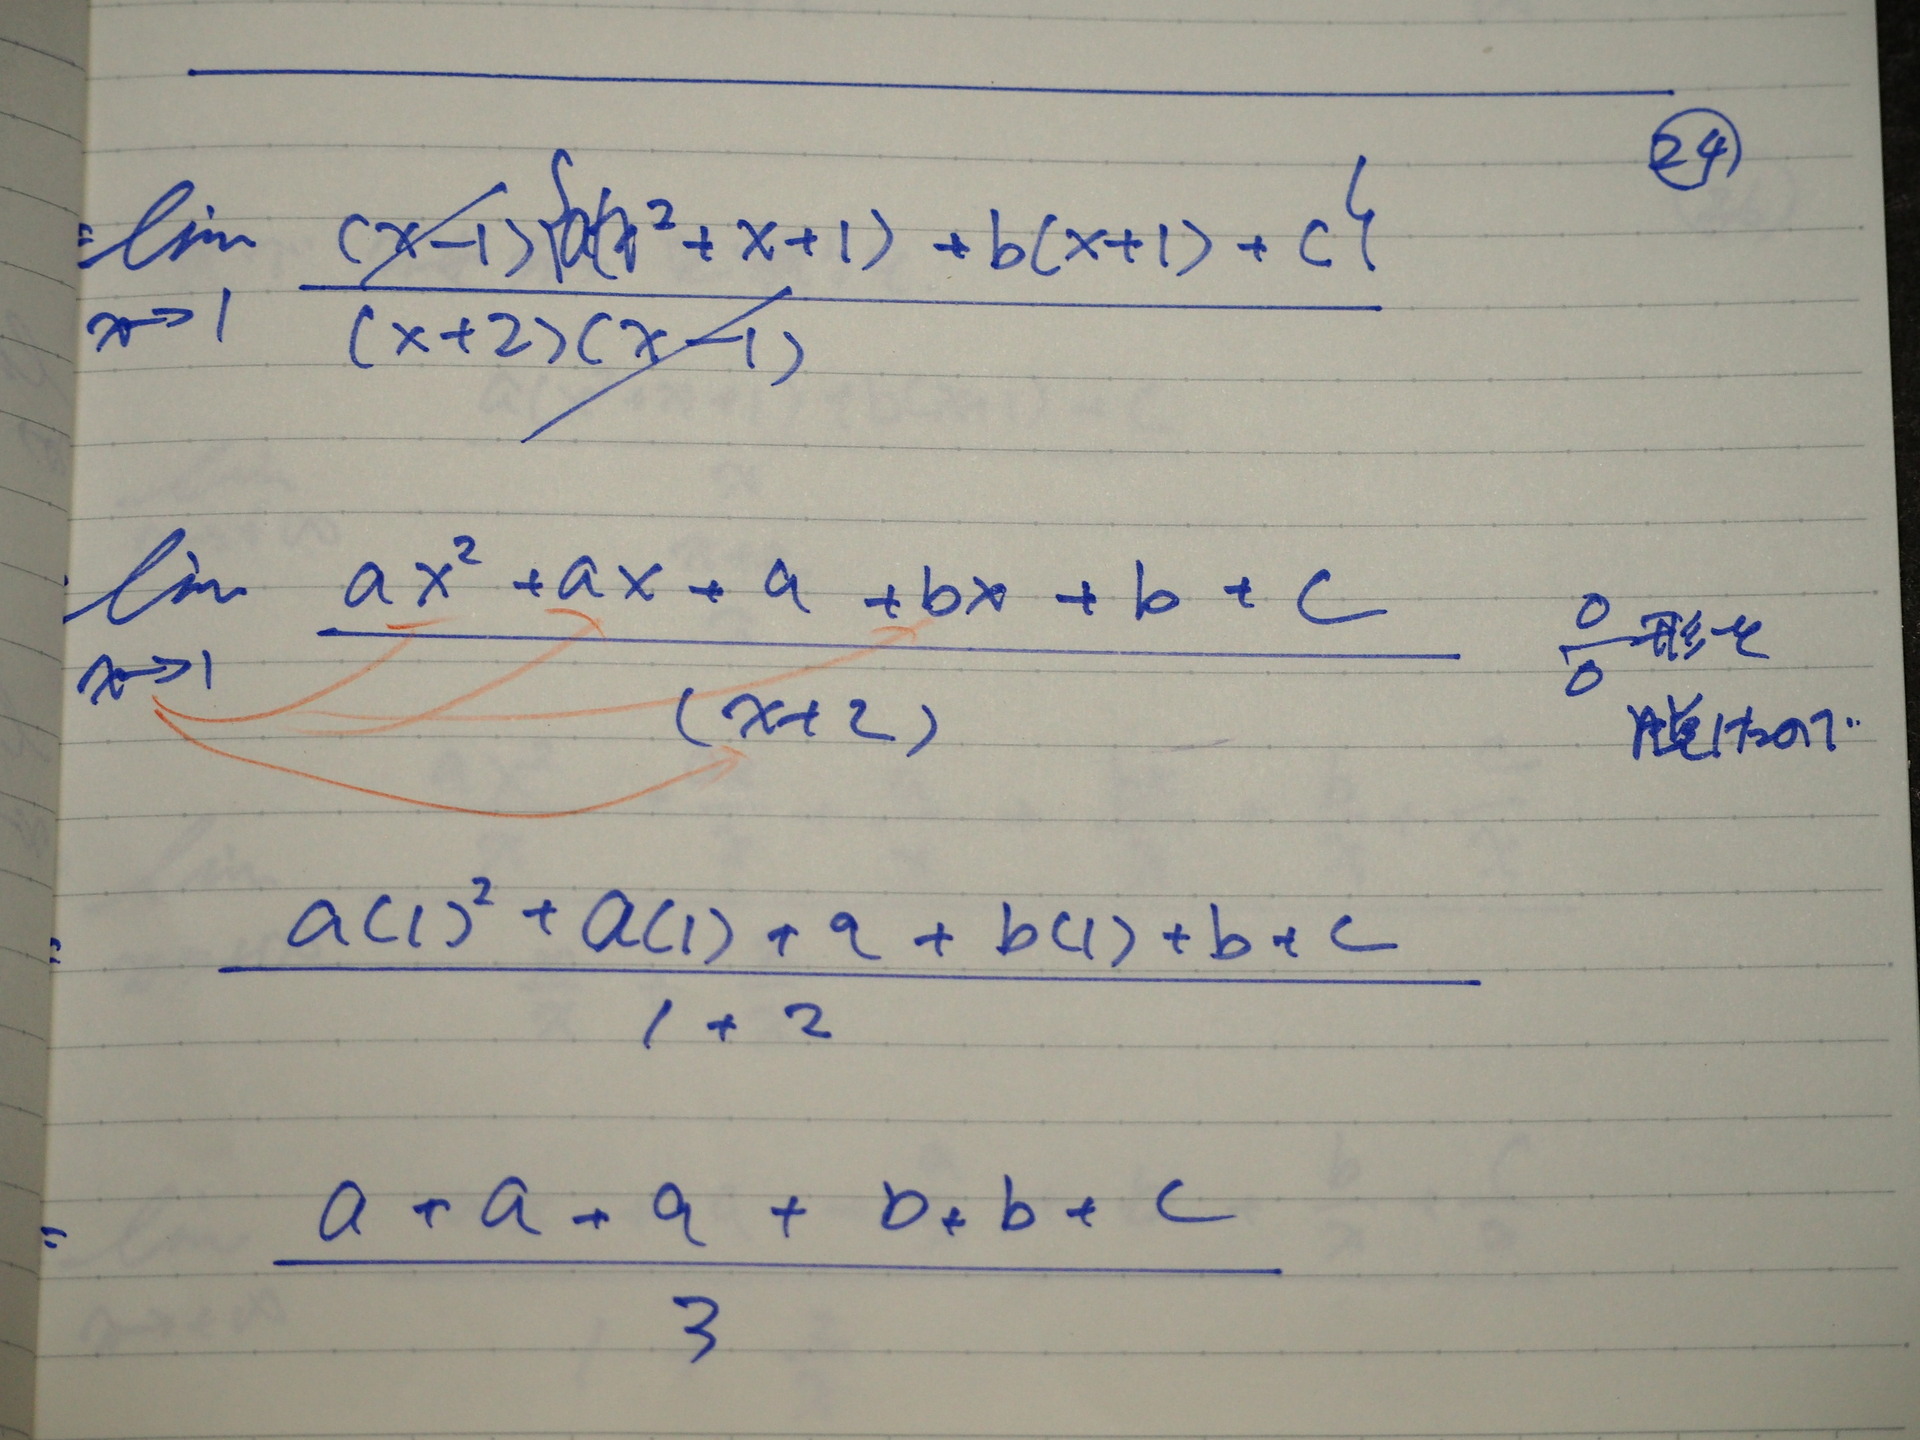 ㉔
= lim (x-1){a(x²+x+1)+b(x+1)+c}
x→1 (x+2)(x-1)
lim ax²+ax+a+bx+b+c
x→1 (x+2)
0/0形を
脱けたので‥
= a(1)²+a(1)+a+b(1)+b+c
1+2
= a+a+a+b+b+c
3